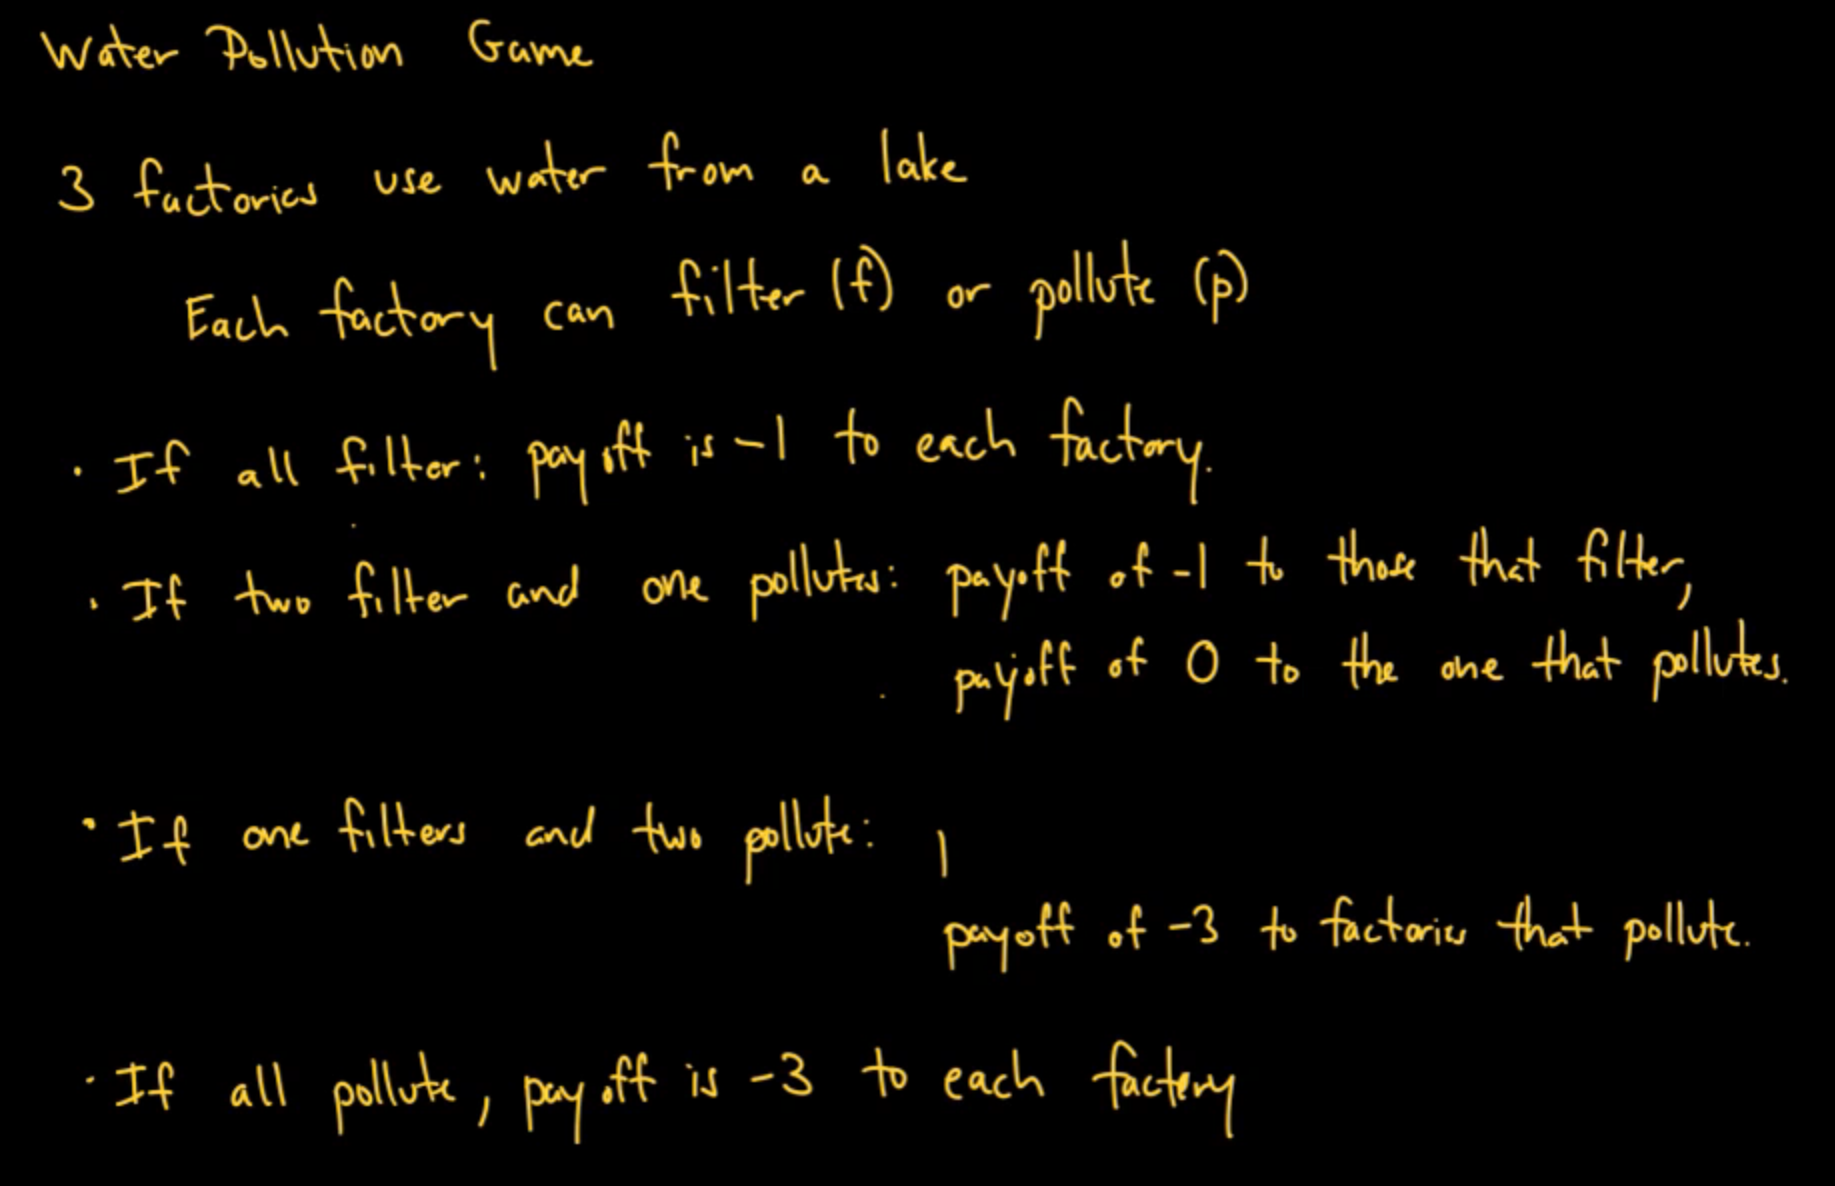 Water Pollution Game
3 factories use water from a lake
Each factory can filter (f) or pollute (p)
· If all filter: payoff is -1 to each factory.
· If two filter and one pollutes: payoff of -1 to those that filter,
payoff of 0 to the one that pollutes.
· If one filters and two pollute:
payoff of -3 to factories that pollute.
· If all pollute, payoff is -3 to each factory